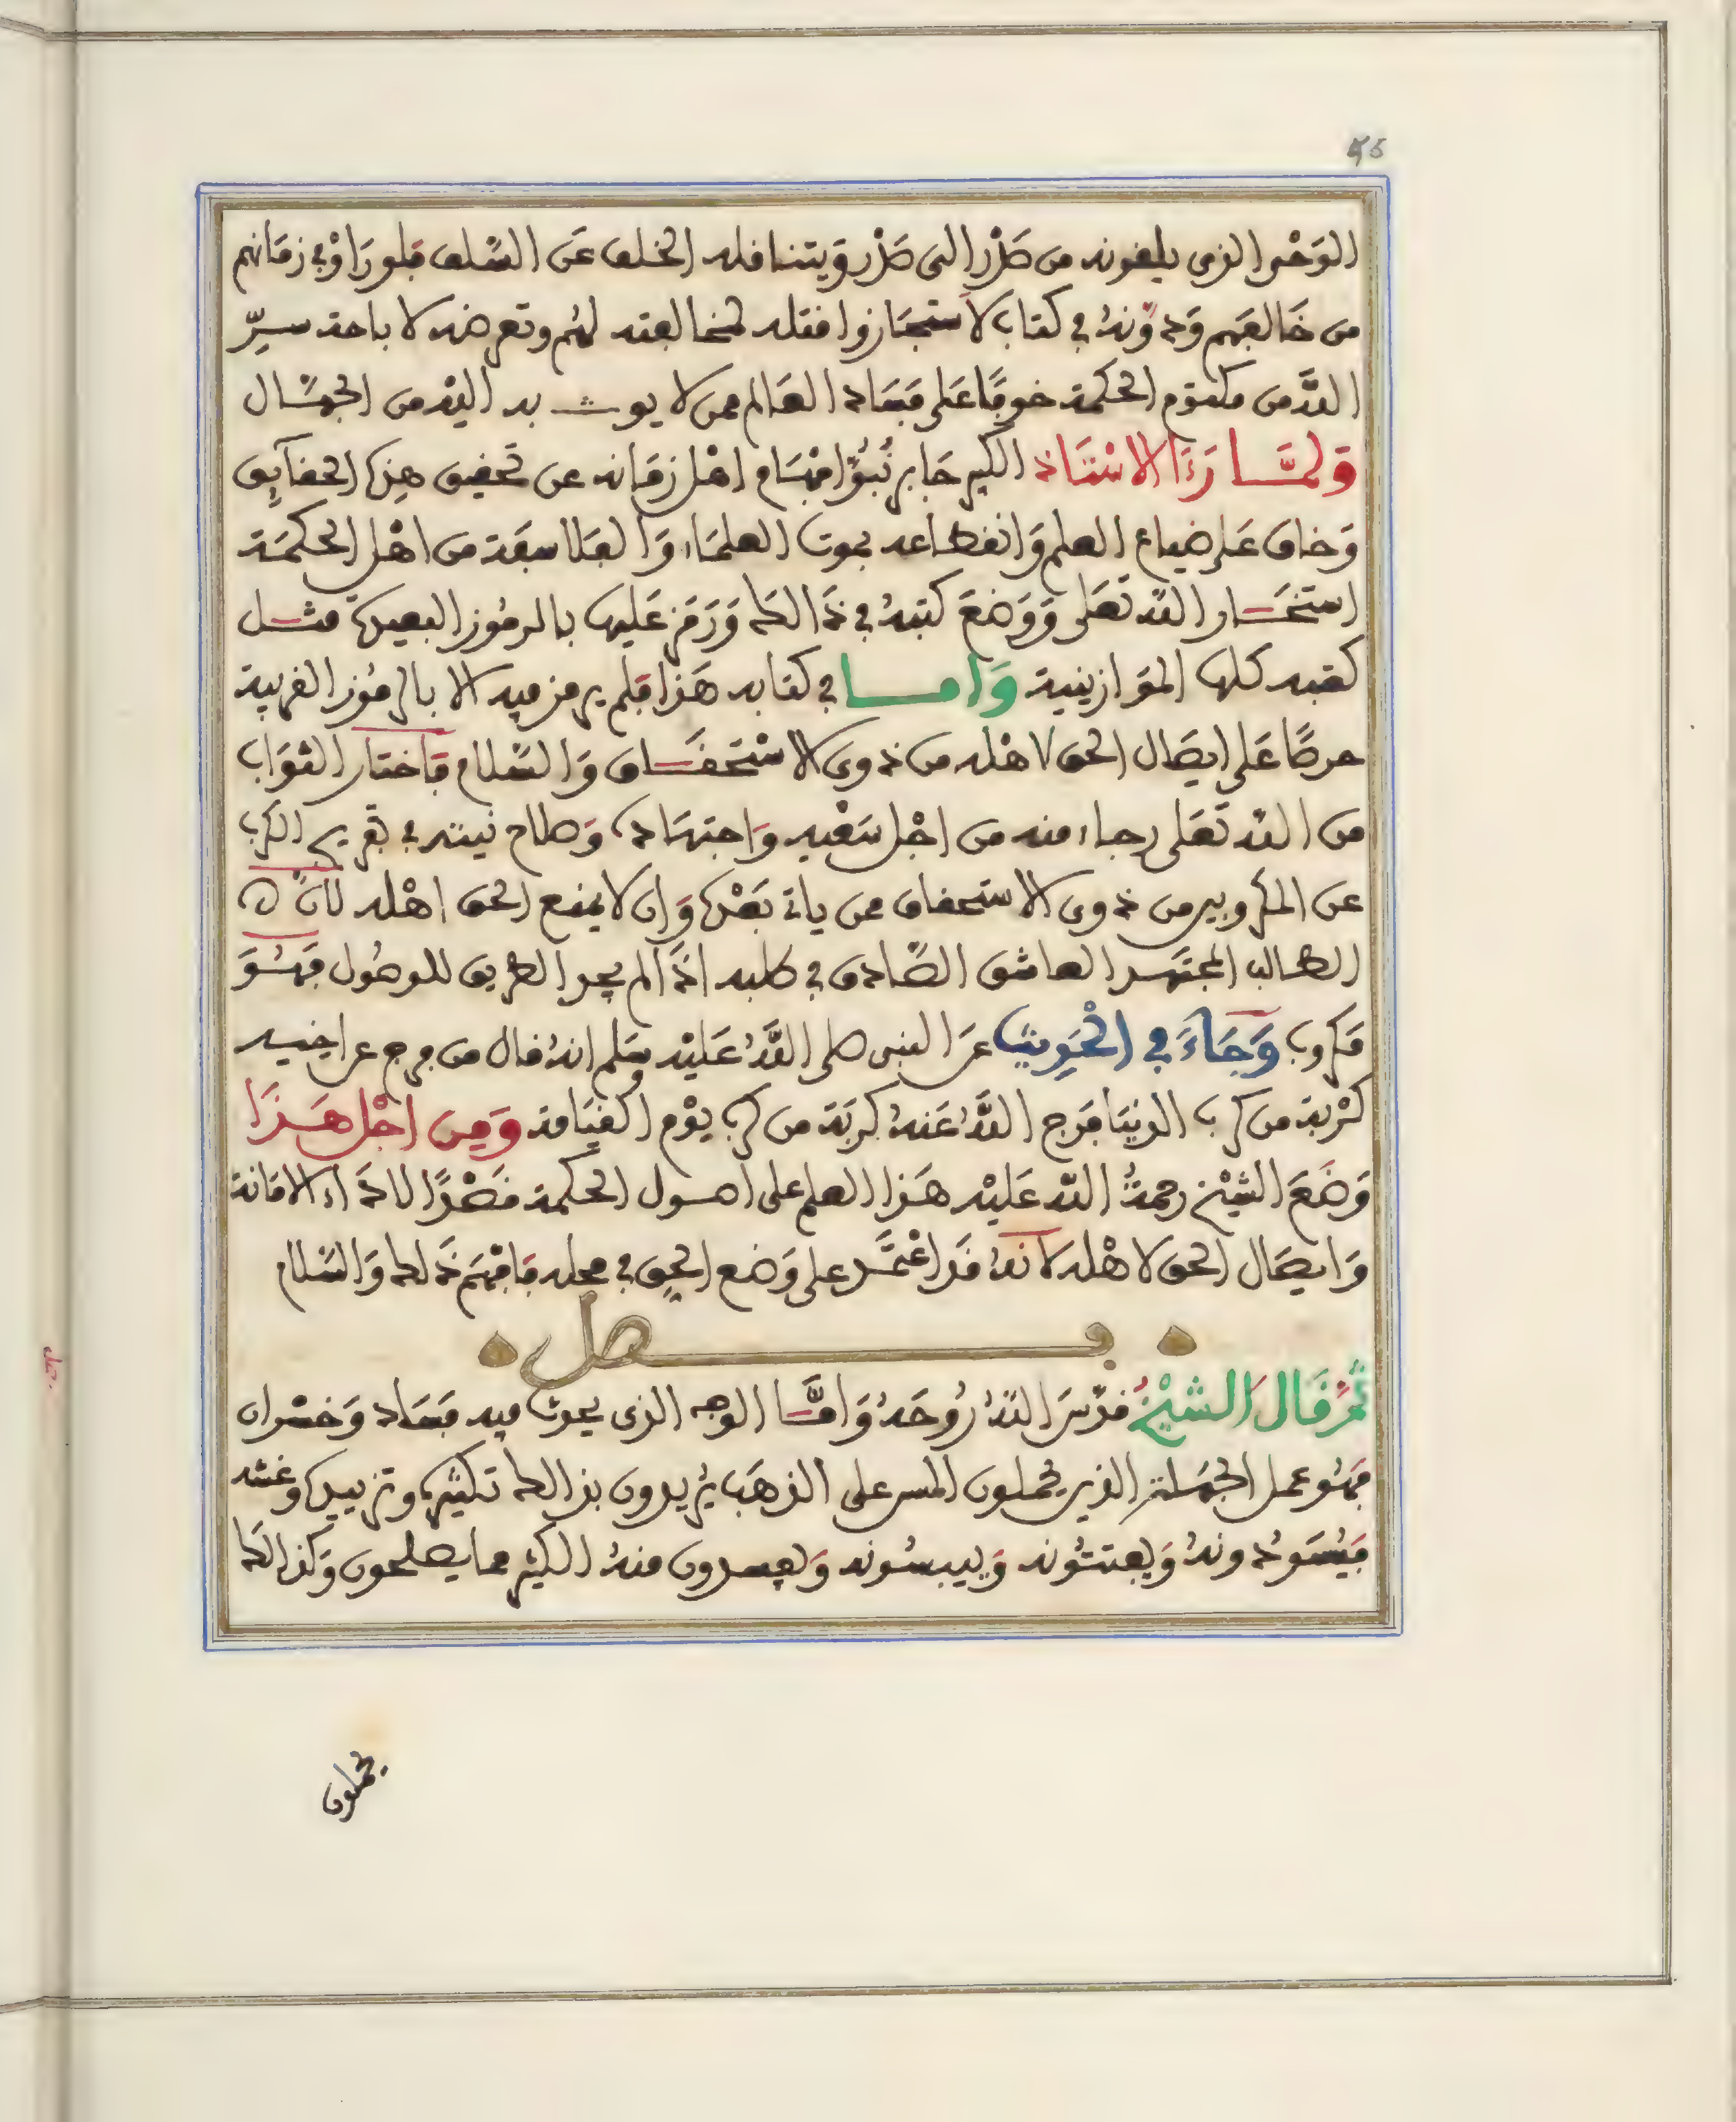 45
الوَحْي الذي يلقونه من صَدْر الى صَدْر وَيتنافله الخلف عَن السَّلف فلو رَاوْا في زمَانهم
من خَالفهم وَدوَّنهُ في كتاب لاستجَازوا قتله لمخالفته لهُم وتعرضه لاباحة سِرّ
اللهَ من مكتوم الحكمة خوفًا عَلى فسَاد العَالم ممن لا يوثـــق به اليْه من الجهـَّـال
وَلمَّــا رَءَا الاسْتَاذ الكبير جَابر نُبُوَّ افهَام اهْل زمَانه عن تحقيق هذِه الحقآيِق
وَخاف عَلى ضياع العلم وَانقطاعه بموت العلمَاء وَالفلاسفة من اهْل الحكمَة
استخـَـار اللهَ تعَلى وَوَضعَ كتبهُ في ذَالك وَرَمَز عَليها بالرمُوز البعيدة مثـــل
كتبه كلها الموَازينية وَامـــا في كتابه هَذا فلم يرمز فيه الا بالرمُوز القريبة
حرصًا عَلى ايصَال الحق لاهْله من ذوى الاسْتحقـَـاق وَالسَّلام فاختار الثوَاب
من اللهِ تعَلى رجاء منه من اجْل سَعْيه وَاجتهَاده وَصلاح نيته في تفريج الكرب
عن المكروبين من ذوى الاستحقاق ممن ياتي بَعْده وَان لا يمنع الحق اهْله لانَّ
الطالب المجتهد العاشق الصَّادق في طلبه اذَا لم يجد الطريق للوصُول فَهُـوَ
مكروب وَجَآءَ فِي الحَدِيثِ عَن النبي صلى اللهُ عَليْه وسَلم انهُ قال من فرج عن اخيـه
كرْبة من كرب الدنيَا فرَج اللهُ عَنهُ كربَة من كرب يوْم القيَامة وَمِن اجْل هَـذَا
وَضَعَ الشيْخ رحمةُ الله عَليْه هَـذا العلم على اصـول الحكمة قصْدًا لادَاء الامَانة
وَايصَال الحق لاهْله لانهُ قَد اعْتمَـد على وَضع الحِق في محله فافهَم ذَلك وَالسَّلام
فـــــصل
ثُمَّ قَال الشيْخُ قدَّسَ اللهُ رُوحَهُ وَامَّــا الوجه الذى يحدث فيه فسَاد وَخسْران
فهُو عمل الجهَلة الذين يحملون المس على الذهَب يُريدون بذالك تكثيره وتزييده وغشه
فيُسَوّدونهُ وَيفتتُونه وَييبسُونه وَيفسدون منهُ اكثر مما يصلحون وَكذالك
يحملون